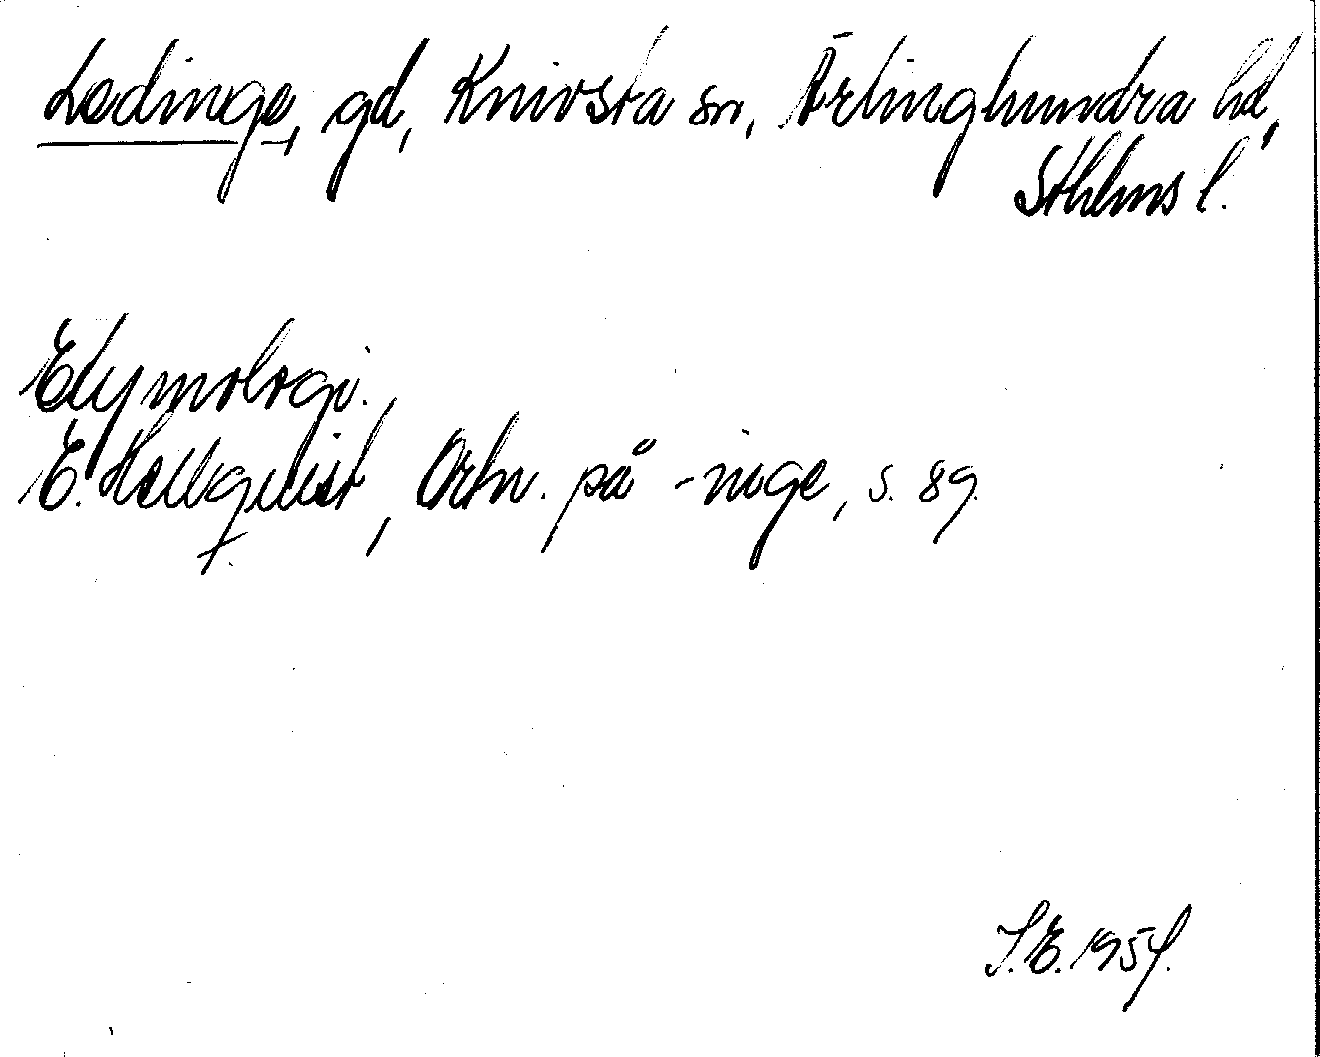 Ledinge, gd, Knivsta sn, Ärlinghundra hd,
Sthlms l.
Etymologi.
E. Hellquist, Ortn. på -inge, s. 89.
S.E. 1954.